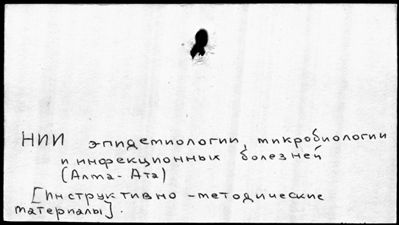 НИИ эпидемиологии, микробиологии
и инфекционных болезней
(Алма-Ата)
[Инструктивно-методические
материалы].